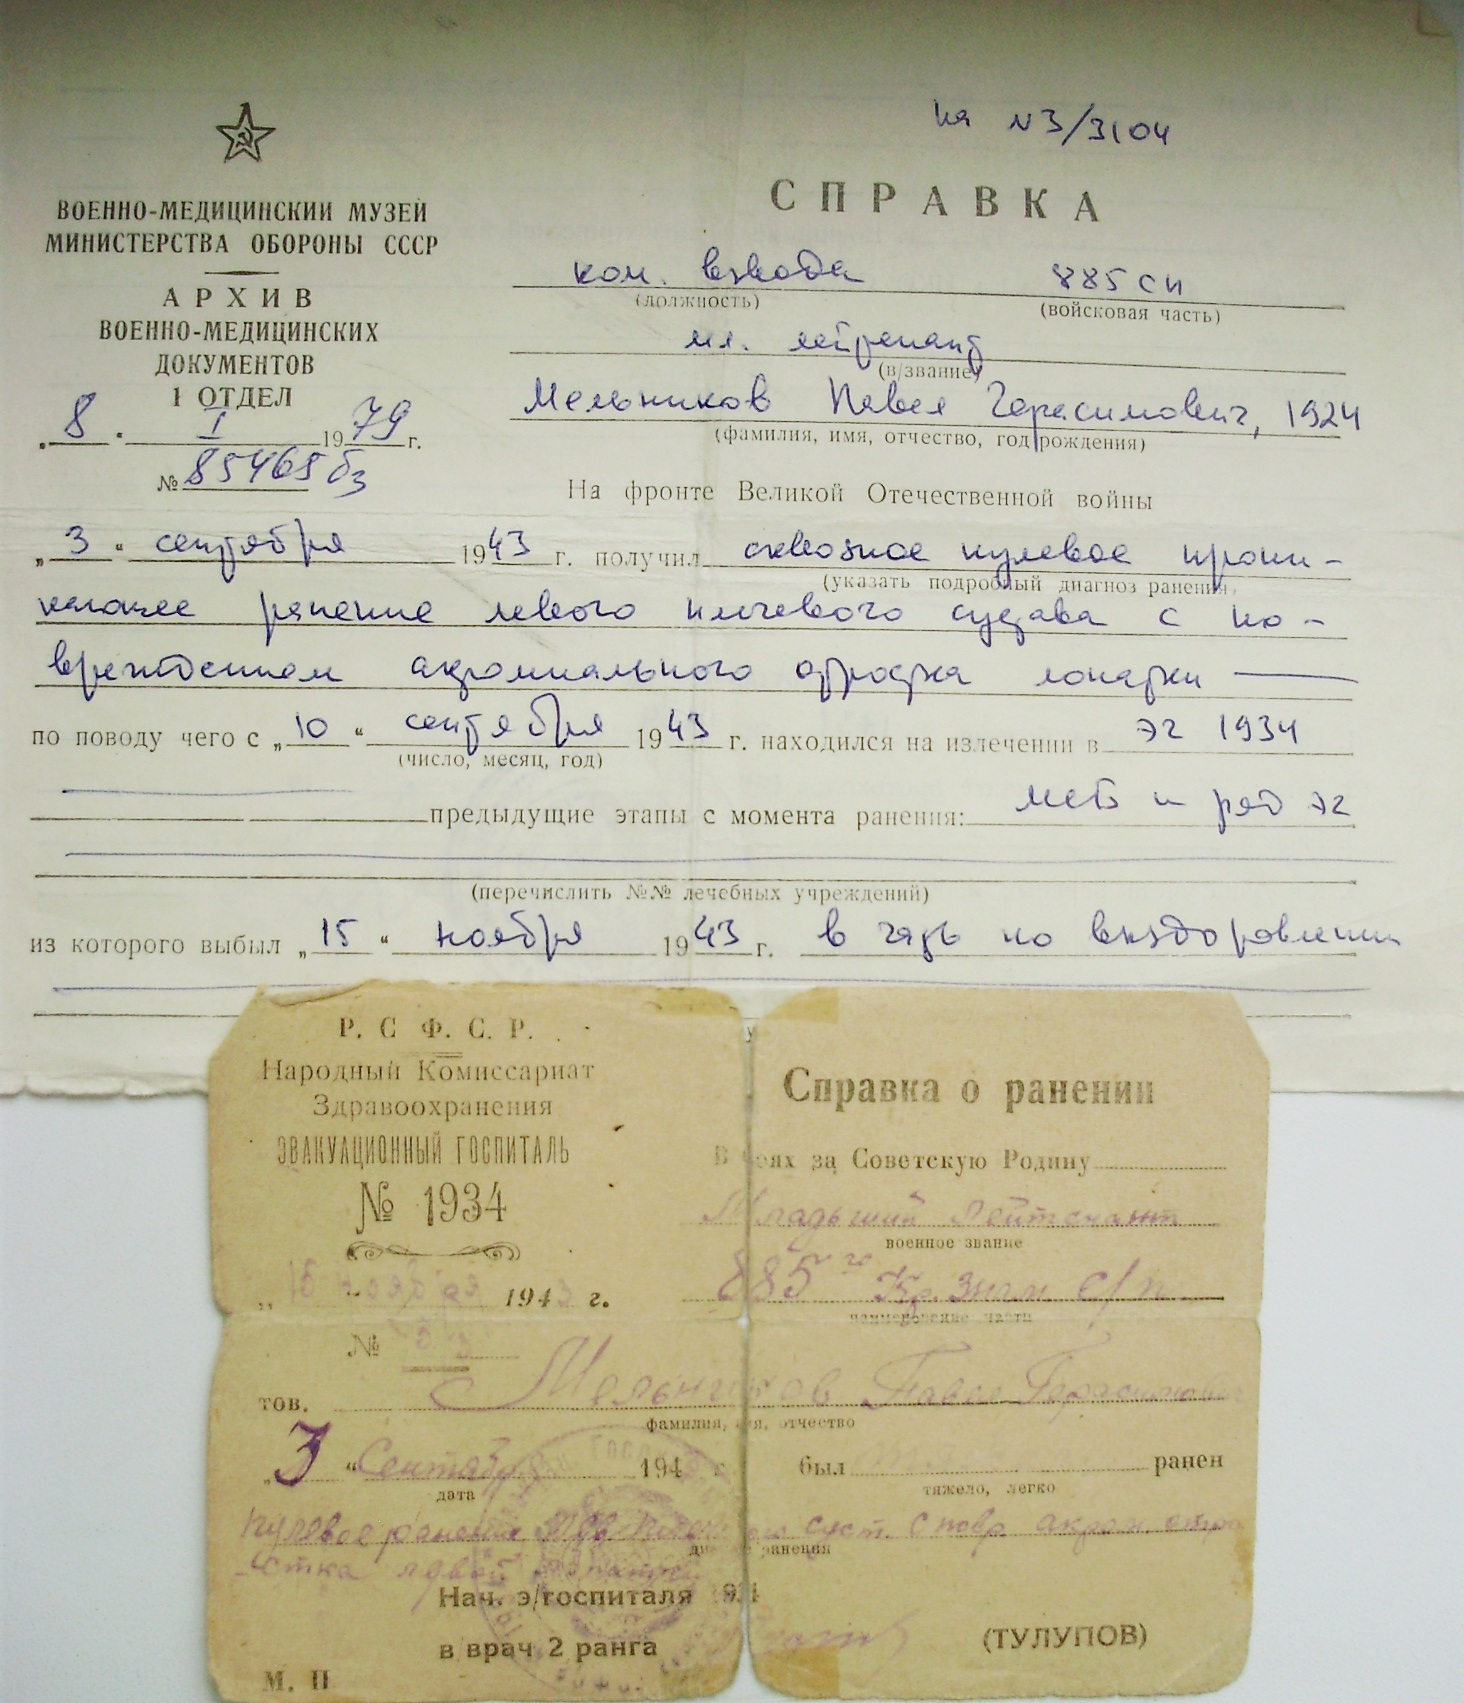 на №3/3104
ВОЕННО-МЕДИЦИНСКИЙ МУЗЕЙ
МИНИСТЕРСТВА ОБОРОНЫ СССР
АРХИВ
ВОЕННО-МЕДИЦИНСКИХ
ДОКУМЕНТОВ
1 ОТДЕЛ
„8" I 1979 г.
№ 85465 бз
СПРАВКА
ком. взвода 885 сп
(должность) (войсковая часть)
мл. лейтенант
(в/звание)
Мельников Павел Герасимович, 1924
(фамилия, имя, отчество, год рождения)
На фронте Великой Отечественной войны
„3" сентября 1943 г. получил сквозное пулевое прони-
(указать подробный диагноз ранения)
кающее ранение левого плечевого сустава с по-
вреждением акромиального отростка лопатки
по поводу чего с „10" сентября 1943 г. находился на излечении в ЭГ 1934
(число, месяц, год)
предыдущие этапы с момента ранения: МСБ и ряд ЭГ
(перечислить №№ лечебных учреждений)
из которого выбыл „15" ноября 1943 г. в часть по выздоровлении
Р. С Ф. С. Р.
Народный Комиссариат
Здравоохранения
ЭВАКУАЦИОННЫЙ ГОСПИТАЛЬ
№ 1934
„15 ноября 1943 г.
№
Справка о ранении
В боях за Советскую Родину
Младьший Лейтенант
военное звание
885го Кр. Знам с/п
наименование части
тов. Мельников Павел Герасимович
фамилия, имя, отчество
„3" Сентября 194 г был ранен
дата тяжело, легко
пулевое ранение лев. суст. с повр акром отро
диагноз ранения
стка левой лопатки
Нач. э/госпиталя 1934
в/врач 2 ранга (ТУЛУПОВ)
М. П